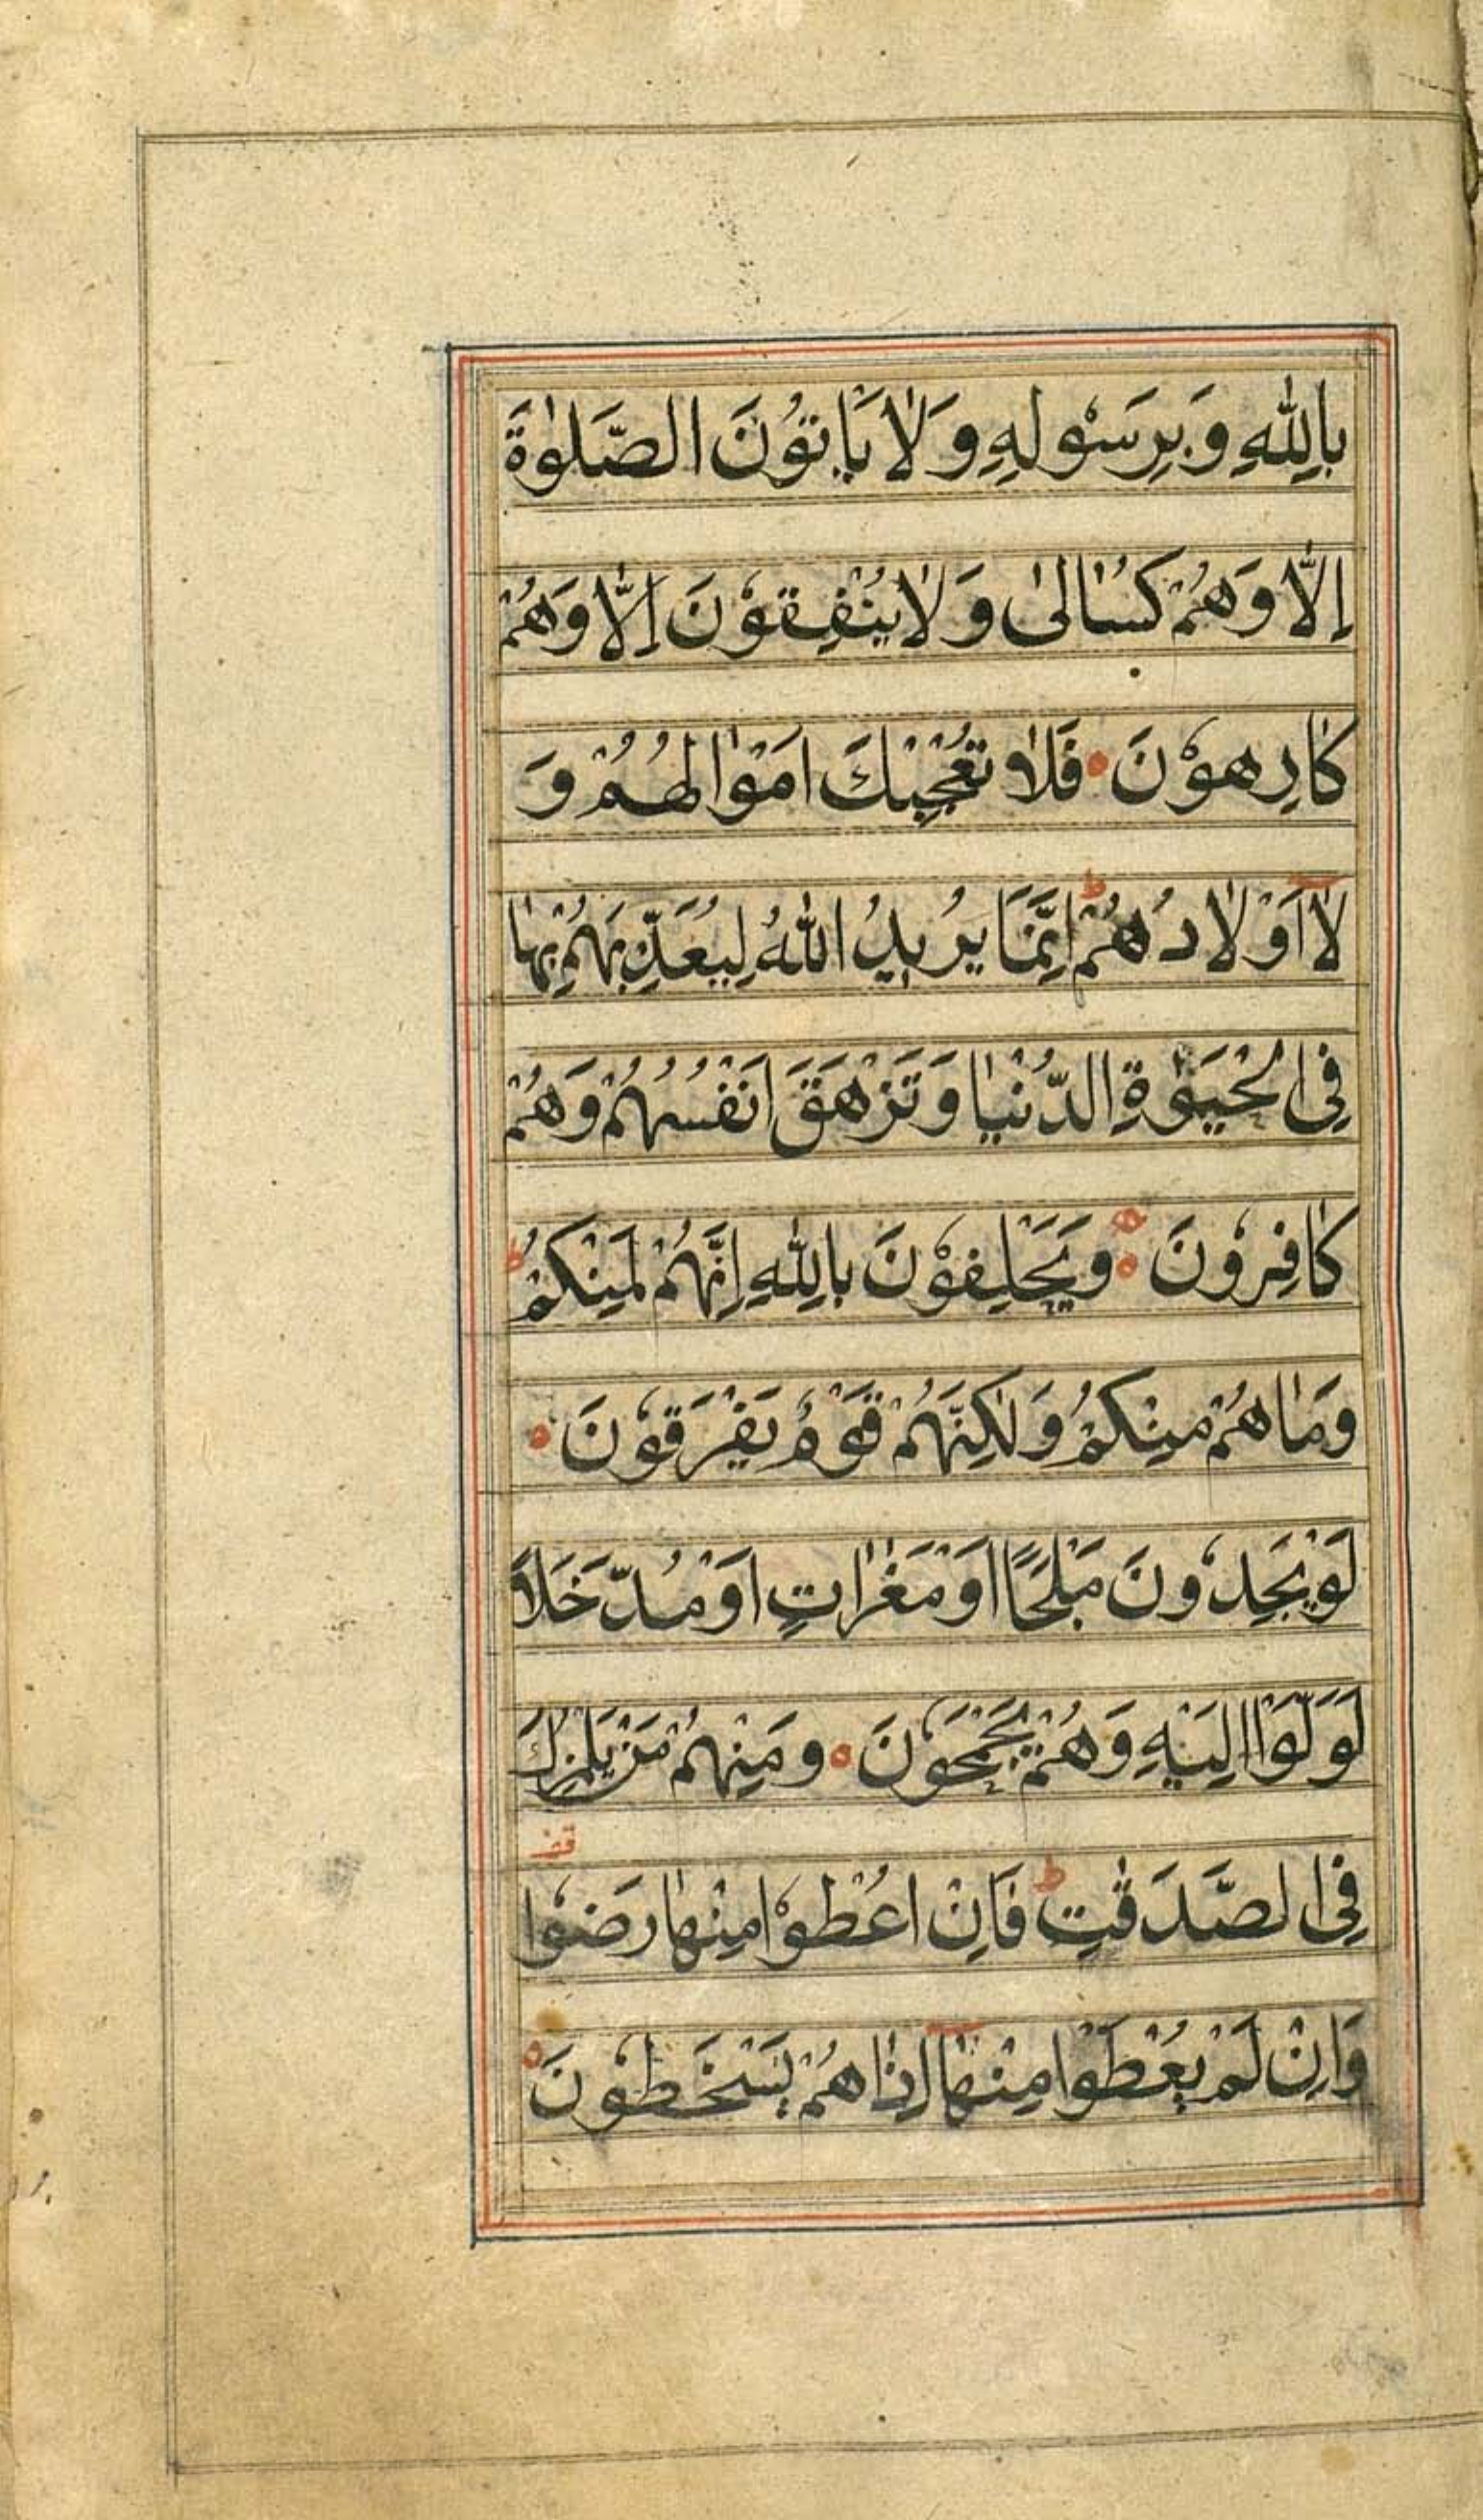 بِاللّٰهِ وَبِرَسُولِهِ وَلَا يَاْتُوْنَ الصَّلٰوةَ
اِلَّا وَهُمْ كُسَالٰى وَلَا يُنْفِقُوْنَ اِلَّا وَهُمْ
كَارِهُوْنَ ۝ فَلَا تُعْجِبْكَ اَمْوَالُهُمْ وَ
لَا اَوْلَادُهُمْ ط اِنَّمَا يُرِيدُ اللّٰهُ لِيُعَذِّبَهُمْ بِهَا
فِى الْحَيٰوةِ الدُّنْيَا وَتَزْهَقَ اَنْفُسُهُمْ وَهُمْ
كَافِرُونَ ۝ وَيَحْلِفُوْنَ بِاللّٰهِ اِنَّهُمْ لَمِنْكُمْ ط
وَمَا هُمْ مِنْكُمْ وَلٰكِنَّهُمْ قَوْمٌ يَفْرَقُوْنَ ۝
لَوْ يَجِدُونَ مَلْجَاً اَوْ مَغٰرَاتٍ اَوْ مُدَّخَلًا
لَوَلَّوْا اِلَيْهِ وَهُمْ يَجْمَحُوْنَ ۝ وَمِنْهُمْ مَنْ يَلْمِزُكَ
فِى الصَّدَقٰتِ ط فَاِنْ اُعْطُوْا مِنْهَا رَضُوْا قف
وَاِنْ لَمْ يُعْطَوْا مِنْهَا اِذَا هُمْ يَسْخَطُوْنَ ۝